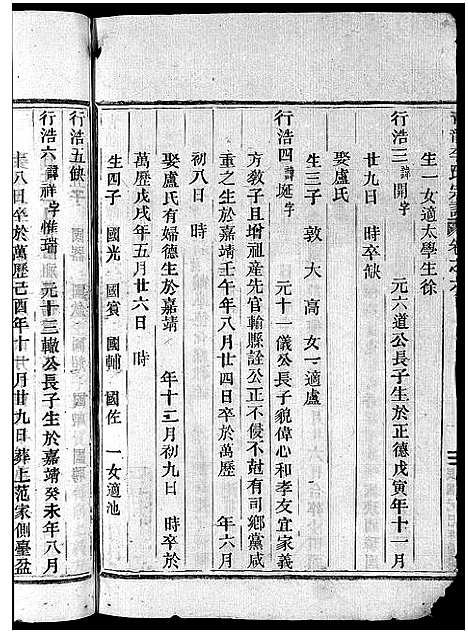 生一女適太學生徐
行浩三諱開字　元六道公長子生於正德戊寅年十一月
廿九日　時卒缺
娶盧氏
生三子　敦　大　高　女一適盧
行浩四諱埏字　元十一儀公長子貌偉心和孝友宜家義
方敎子且增祖產先官輸縣詮公正不侵不尅有司鄉黨咸
重之生於嘉靖壬午年八月廿四日卒於萬歷　年六月
初八日　時
娶盧氏有婦德生於嘉靖　年十二月初九日　時卒於
萬歷戊戌年五月廿六日　時
生四子　國光　國賓　國輔　國佐　一女適池
行浩五缺
行浩六諱祥字惟瑞　元十三轍公長子生於嘉靖癸未年八月
八日卒於萬歷己酉年十月廿九日葬上范家側臺盆